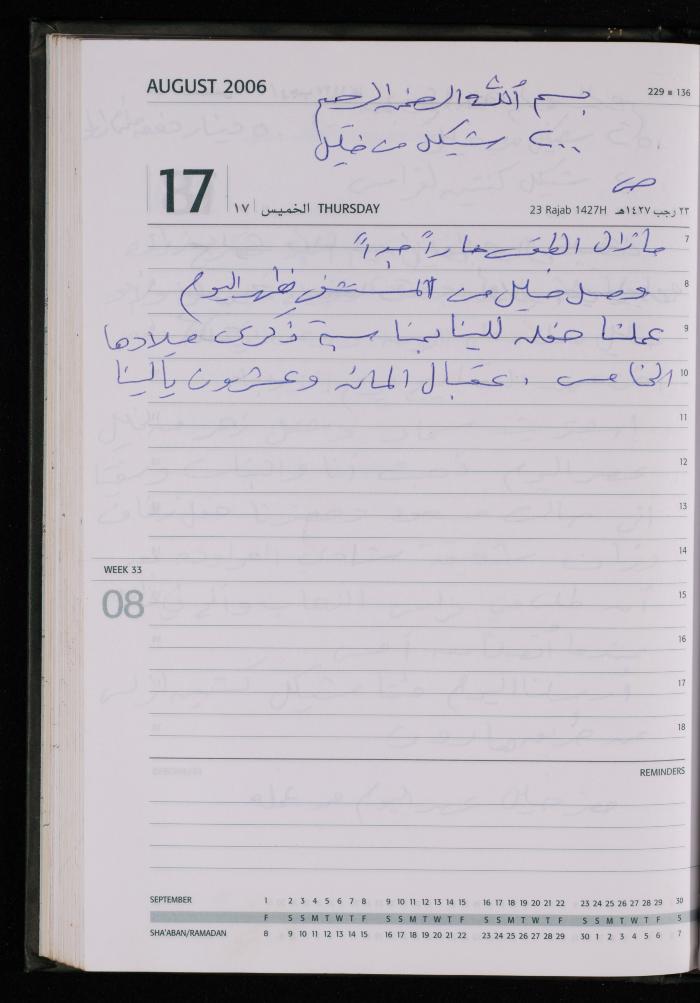 AUGUST 2006
229 ■ 136
بسم الله الرحمن الرحيم
٢٠٠ شيكل من خليل
ص
17 ١٧ الخميس THURSDAY
23 Rajab 1427H ٢٣ رجب ١٤٢٧هـ
7
مازال الطقس حاراً جداً
8
وصل خليل من المستشفى ظهر اليوم
9
عملنا حفله للينا بمناسبة ذكرى ميلادها
10
الخامس . عقبال المائه وعشرون يا لينا
11
12
13
14
WEEK 33
08
15
16
17
18
REMINDERS
SEPTEMBER 1 2 3 4 5 6 7 8 9 10 11 12 13 14 15 16 17 18 19 20 21 22 23 24 25 26 27 28 29 30
F S S M T W T F S S M T W T F S S M T W T F S S M T W T F S
SHA'ABAN/RAMADAN 8 9 10 11 12 13 14 15 16 17 18 19 20 21 22 23 24 25 26 27 28 29 30 1 2 3 4 5 6 7